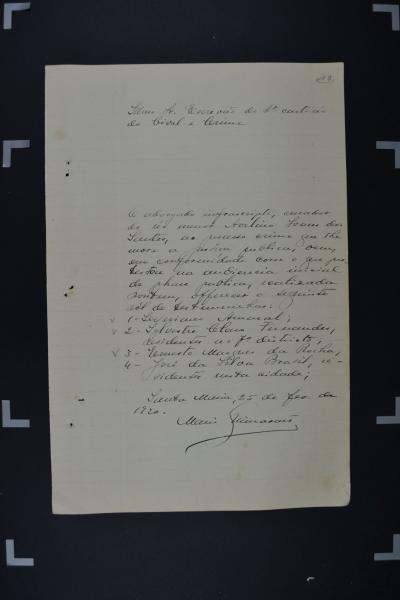 Illmo Sr. Escrivão do 1º cartorio
do Civel e Crime
O advogado infrascripto, curador
do réo menor Avelino Soares dos
Santos, no processo crime que lhe
move a justiça publica, vem,
em conformidade com o que
na audiencia inicial
da phase publica, realizada
hontem, offerecer o seguinte
rol de testemunhas:
1 - Amaral;
2 - Sylvestre Claro Fernandes,
residentes no 7º districto;
3 - Ernesto Marques da Rocha,
4 - José da Silva Brasil, re-
sidentes nesta cidade;
Santa Maria, 25 de fev. de
1920.